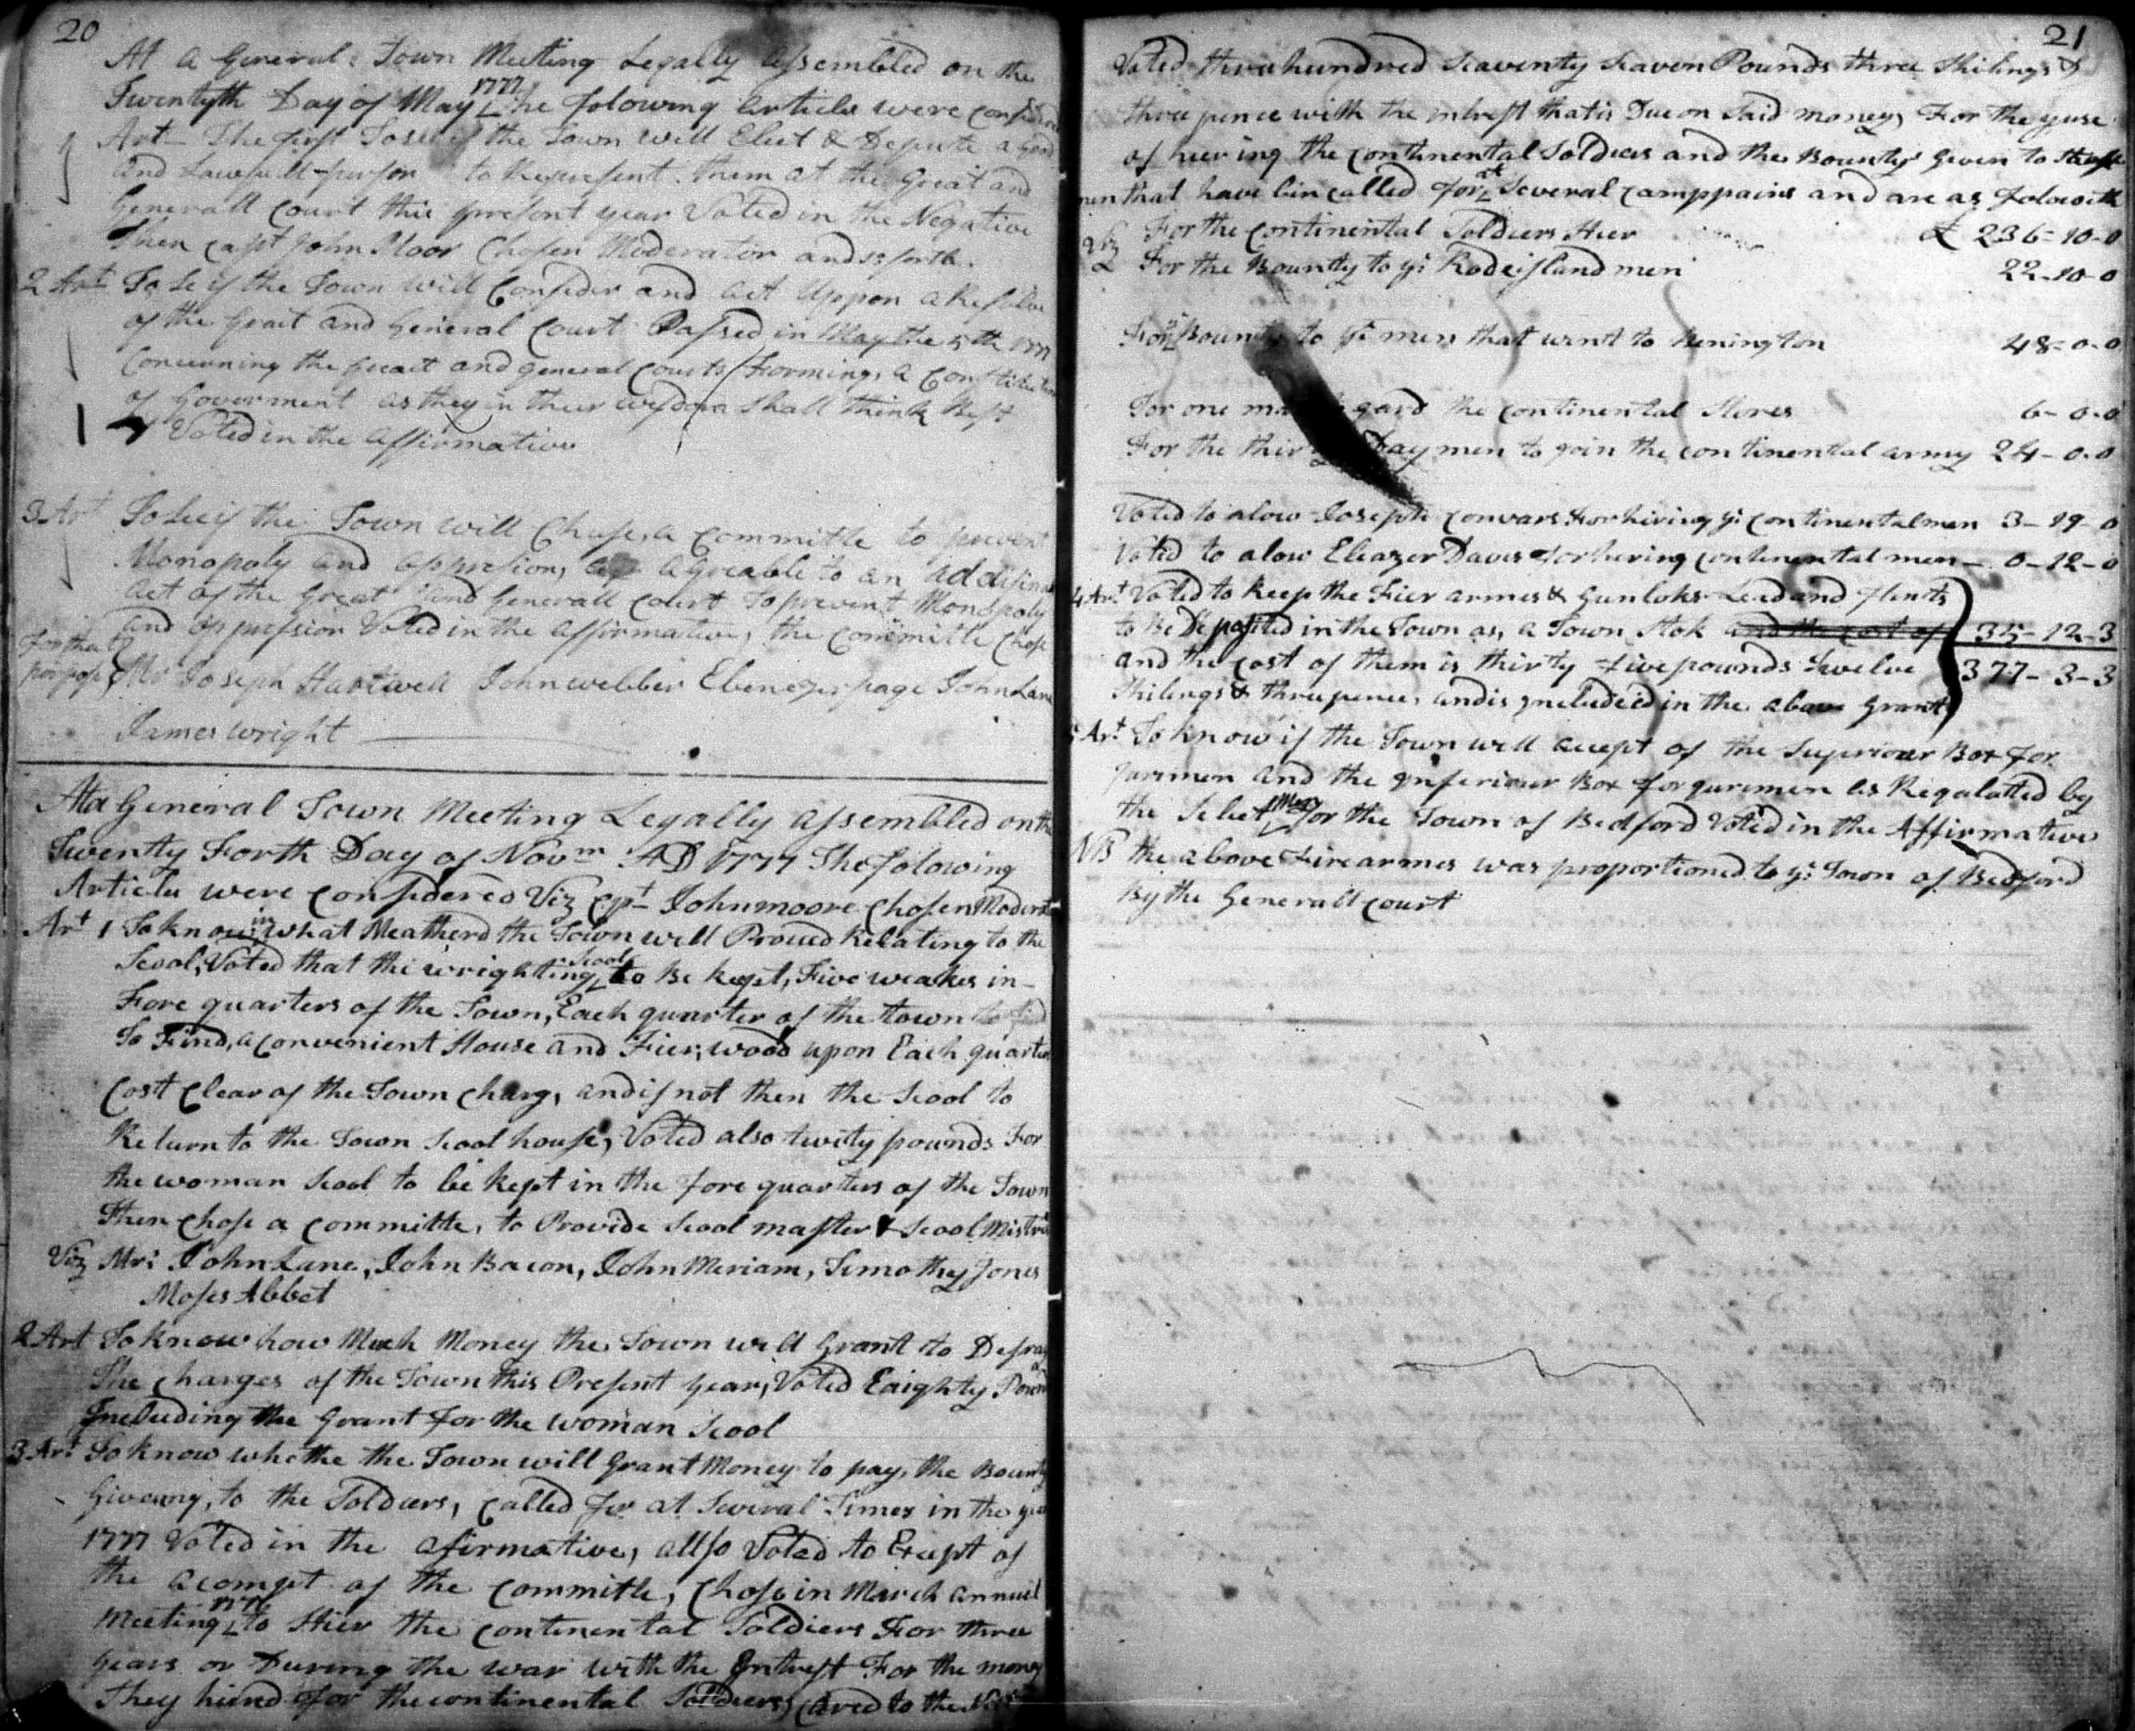 20
At a General Town Meeting Legally assembled on the
Twentyth Day of May 1777 the folowing article were considered
Art The first To see if the Town will Elect & Depute a good
and Lawfull person to Represent them at the Great and
Generall Court this present year Voted in the Negative
Then Capt John Moor Chosen Moderator and so forth.
2 Art To Se if the Town will Consider and act Uppon a Resolve
of the Grait and General Court Passed in May the 5th 1777
Concerning the Grait and general Courts Forming, a Constitution
of Goverment as they in their wisdom Shall think Best
Voted in the affirmative
3 Art To See if the Town will Chuse, a Committe to prevent
Monopoly and oppresion, agreable to an addisinal
act of the Great and Generall Court To prevent Monopoly
and oppression Voted in the affirmative, the committe Chose
for that
porpose Mr Joseph Hartwell John webber Ebenezer page John Lane
James wright
At a General Town Meeting Legally assembled on the
Twenty Forth Day of Novm AD 1777 The folowing
Articles were Considered Viz Cpt John moore Chosen Moderator
Art 1 To know in what Meatherd the Town will Proued Relating to the
Scool, Voted that the wrighting Scool to Be kept, Five weakes in
Fore quarters of the Town, Each quarter of the town
To Find, a Convenient House and Fier, wood upon Each quarter
Cost Clear of the Town Charg, and if not then the Scool to
Return to the Town Scool house, Voted also twity pounds For
the woman Scool to be kept in the fore quarters of the Town
Then Chose a Committe, to Provide Scool master & Scool Mistres
Viz Mrs John Lane, John Bacon, John Meriam, Timothy Jones
Moses Abbot
2 Art To know how Much Money the Town will Grant to Defray
The Charges of the Town this Present year, Voted Eaighty Pound
Including the Grant for the woman Scool
3 Art To know whethe the Town will Grant Money to pay, the Bounty
Giveing, to the Soldiers, Called for at Several Times in the year
1777 Voted in the afirmative, allso Voted to Except of
the acompt of the Committe, Chose in March annuil
Meeting 1777 to Hier the Continental Soldiers For three
years or During the war with the Intrest For the money
they hired for the continental Soldiers,
21
Voted three hundred Seaventy Seaven Pounds three Shilings &
three pence with the intrest that is Due on Said money, For the yuse
of hiering the Continental Soldiers and the Bounty Given to those
men that have bin called for at Several camppains and are as foloweth
Viz For the Continental Soldiers Hier £ 236-10-0
For the Bounty to ye Rodeisland men 22-10-0
For ye Bounty to ye men that went to Benington 48-0-0
For one man gard the continental Stores 6-0-0
For the thirty Day men to join the continental army 24-0-0
Voted to alow Joseph Convars For hiring ye Continental men 3-19-0
Voted to alow Eleazer Davis For hiring Continental men 0-12-0
4 Art Voted to keep the Fier armes & Gunloks Lead and flents
to Be Deposited in the Town as, a Town Stok and the cost of 35-12-3
and the cost of them is thirty Five pounds Twelve 377-3-3
Shilings & three pence, and is includeid in the above Grant
5 Art To know if the Town will Accept of the Superiour Box for
jurimen and the Inferiour Box for jurimen as Regalatted by
the Select Men for the Town of Bedford Voted in the Affirmative
NB the above Fire armes was proportioned to ye Town of Bedford
By the Generall Court